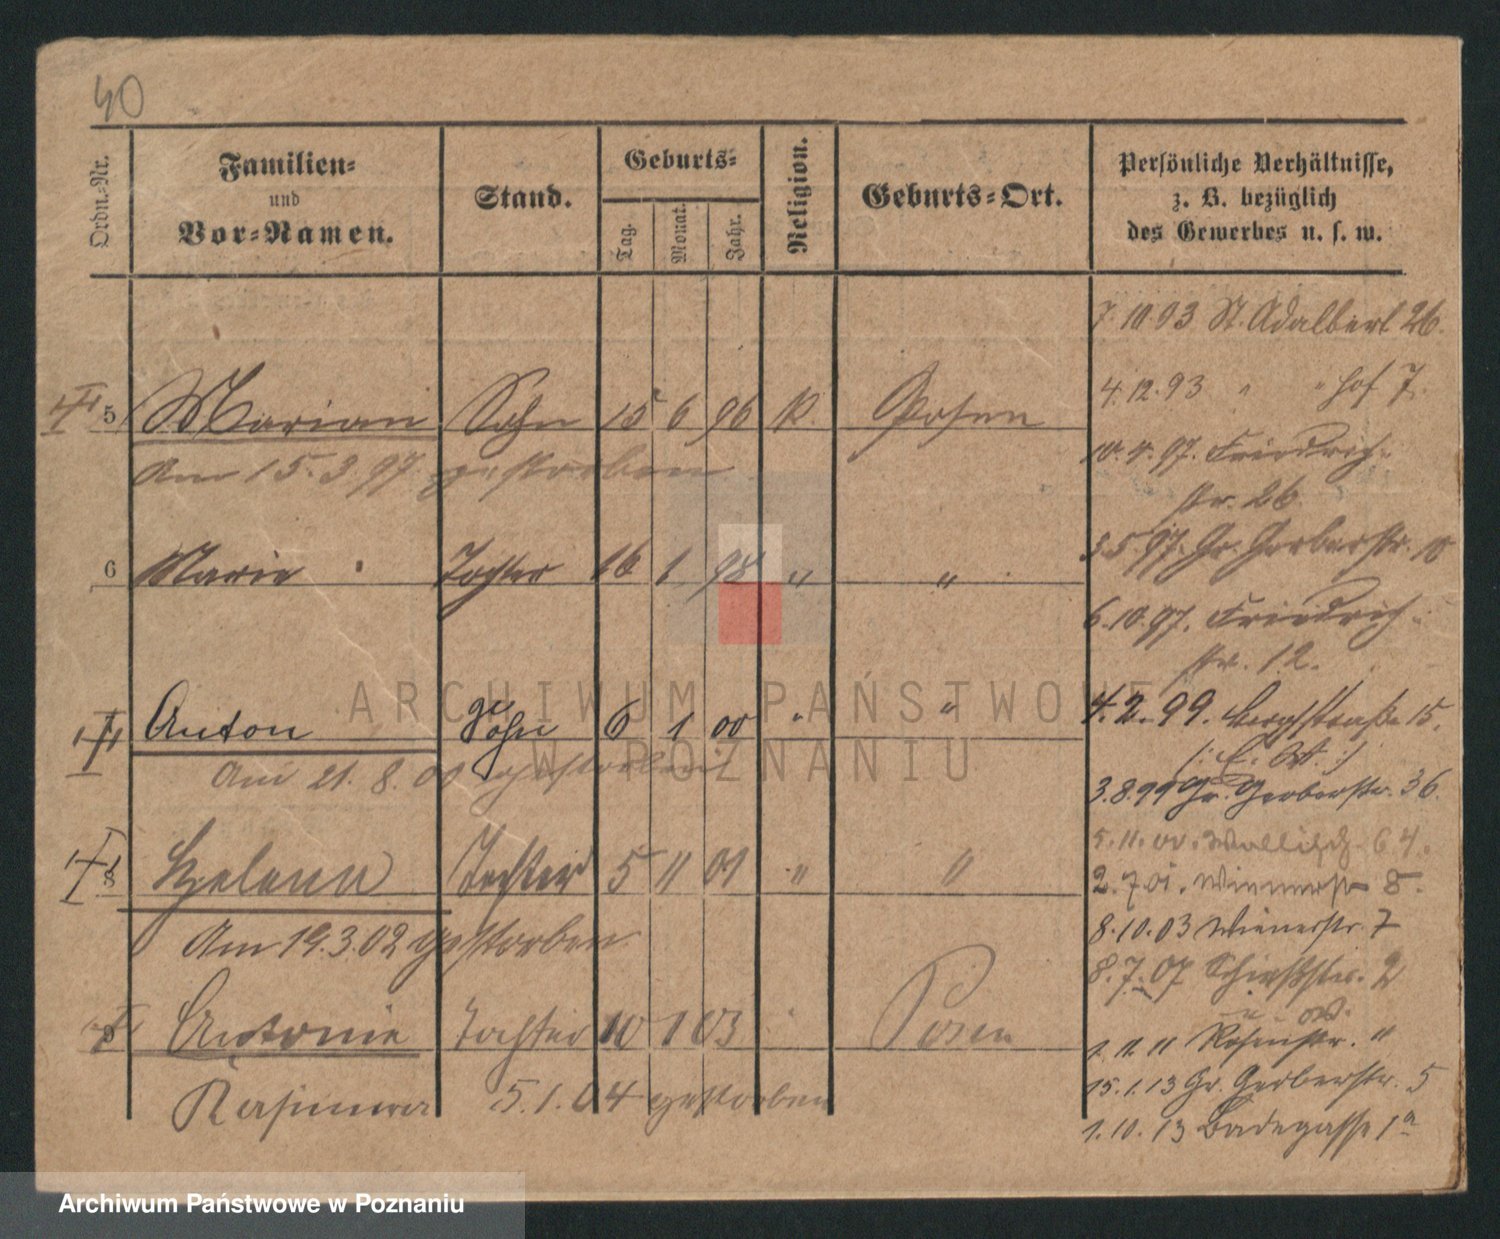 40
Ordn.-Nr.
Familien-
und
Vor-Namen.
Stand.
Geburts-
Tag.
Monat.
Jahr.
Religion.
Geburts-Ort.
Persönliche Verhältnisse,
z. B. bezüglich
des Gewerbes u. s. w.
7.10.93 St. Adalbert 26.
4.12.93 " " hof 7.
5 Marian Sohn 15 6 96 K. Posen
10.4.97. Friedrich-
Am 15.3.97 gestorben
str. 26
3.5.97. Gr. Gerberstr. 10
6 Marie Tochter 16 1 98 " "
6.10.97. Friedrich-
str. 12.
Anton Sohn 6 1 00 " "
4.2.99. Bergstraße 15.
Am 21.8.00 gestorben
3.8.99 Gr. Gerberstr. 36.
5.11.00. Wallisch. 64.
8 Helena Tochter 5 11 01 " "
2.7.01. Wienerstr 8.
8.10.03 Wienerstr. 7
Am 19.3.02 gestorben
8.7.07 Schießstr. 2
9 Antonie Tochter 10 1 03 Posen
1.11.11 Rosenstr. "
15.1.13 Gr. Gerberstr. 5
5.1.04 gestorben
1.10.13 Badegasse 1a
ARCHIWUM PAŃSTWOWE
W POZNANIU
Archiwum Państwowe w Poznaniu